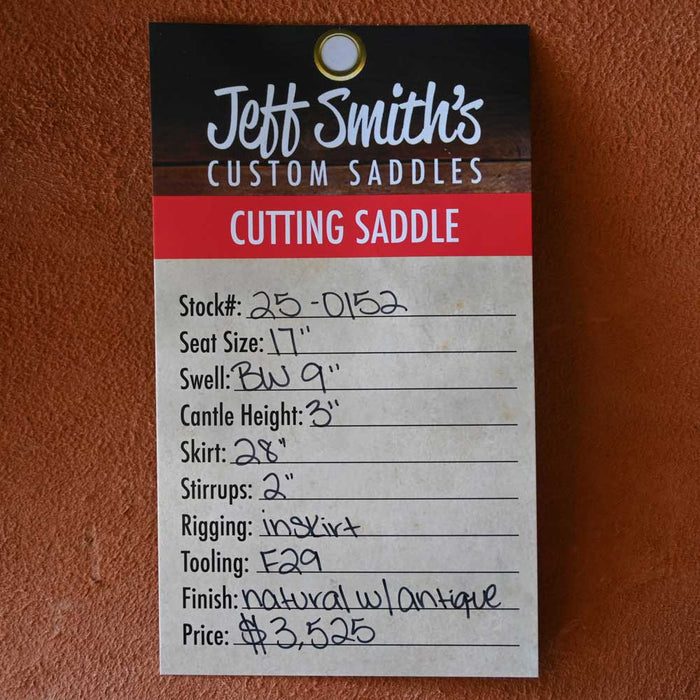 Jeff Smith's
CUSTOM SADDLES
CUTTING SADDLE
Stock#: 25-0152
Seat Size: 17"
Swell: BW 9"
Cantle Height: 3"
Skirt: 28"
Stirrups: 2"
Rigging: inskirt
Tooling: F29
Finish: natural w/ antique
Price: $3,525